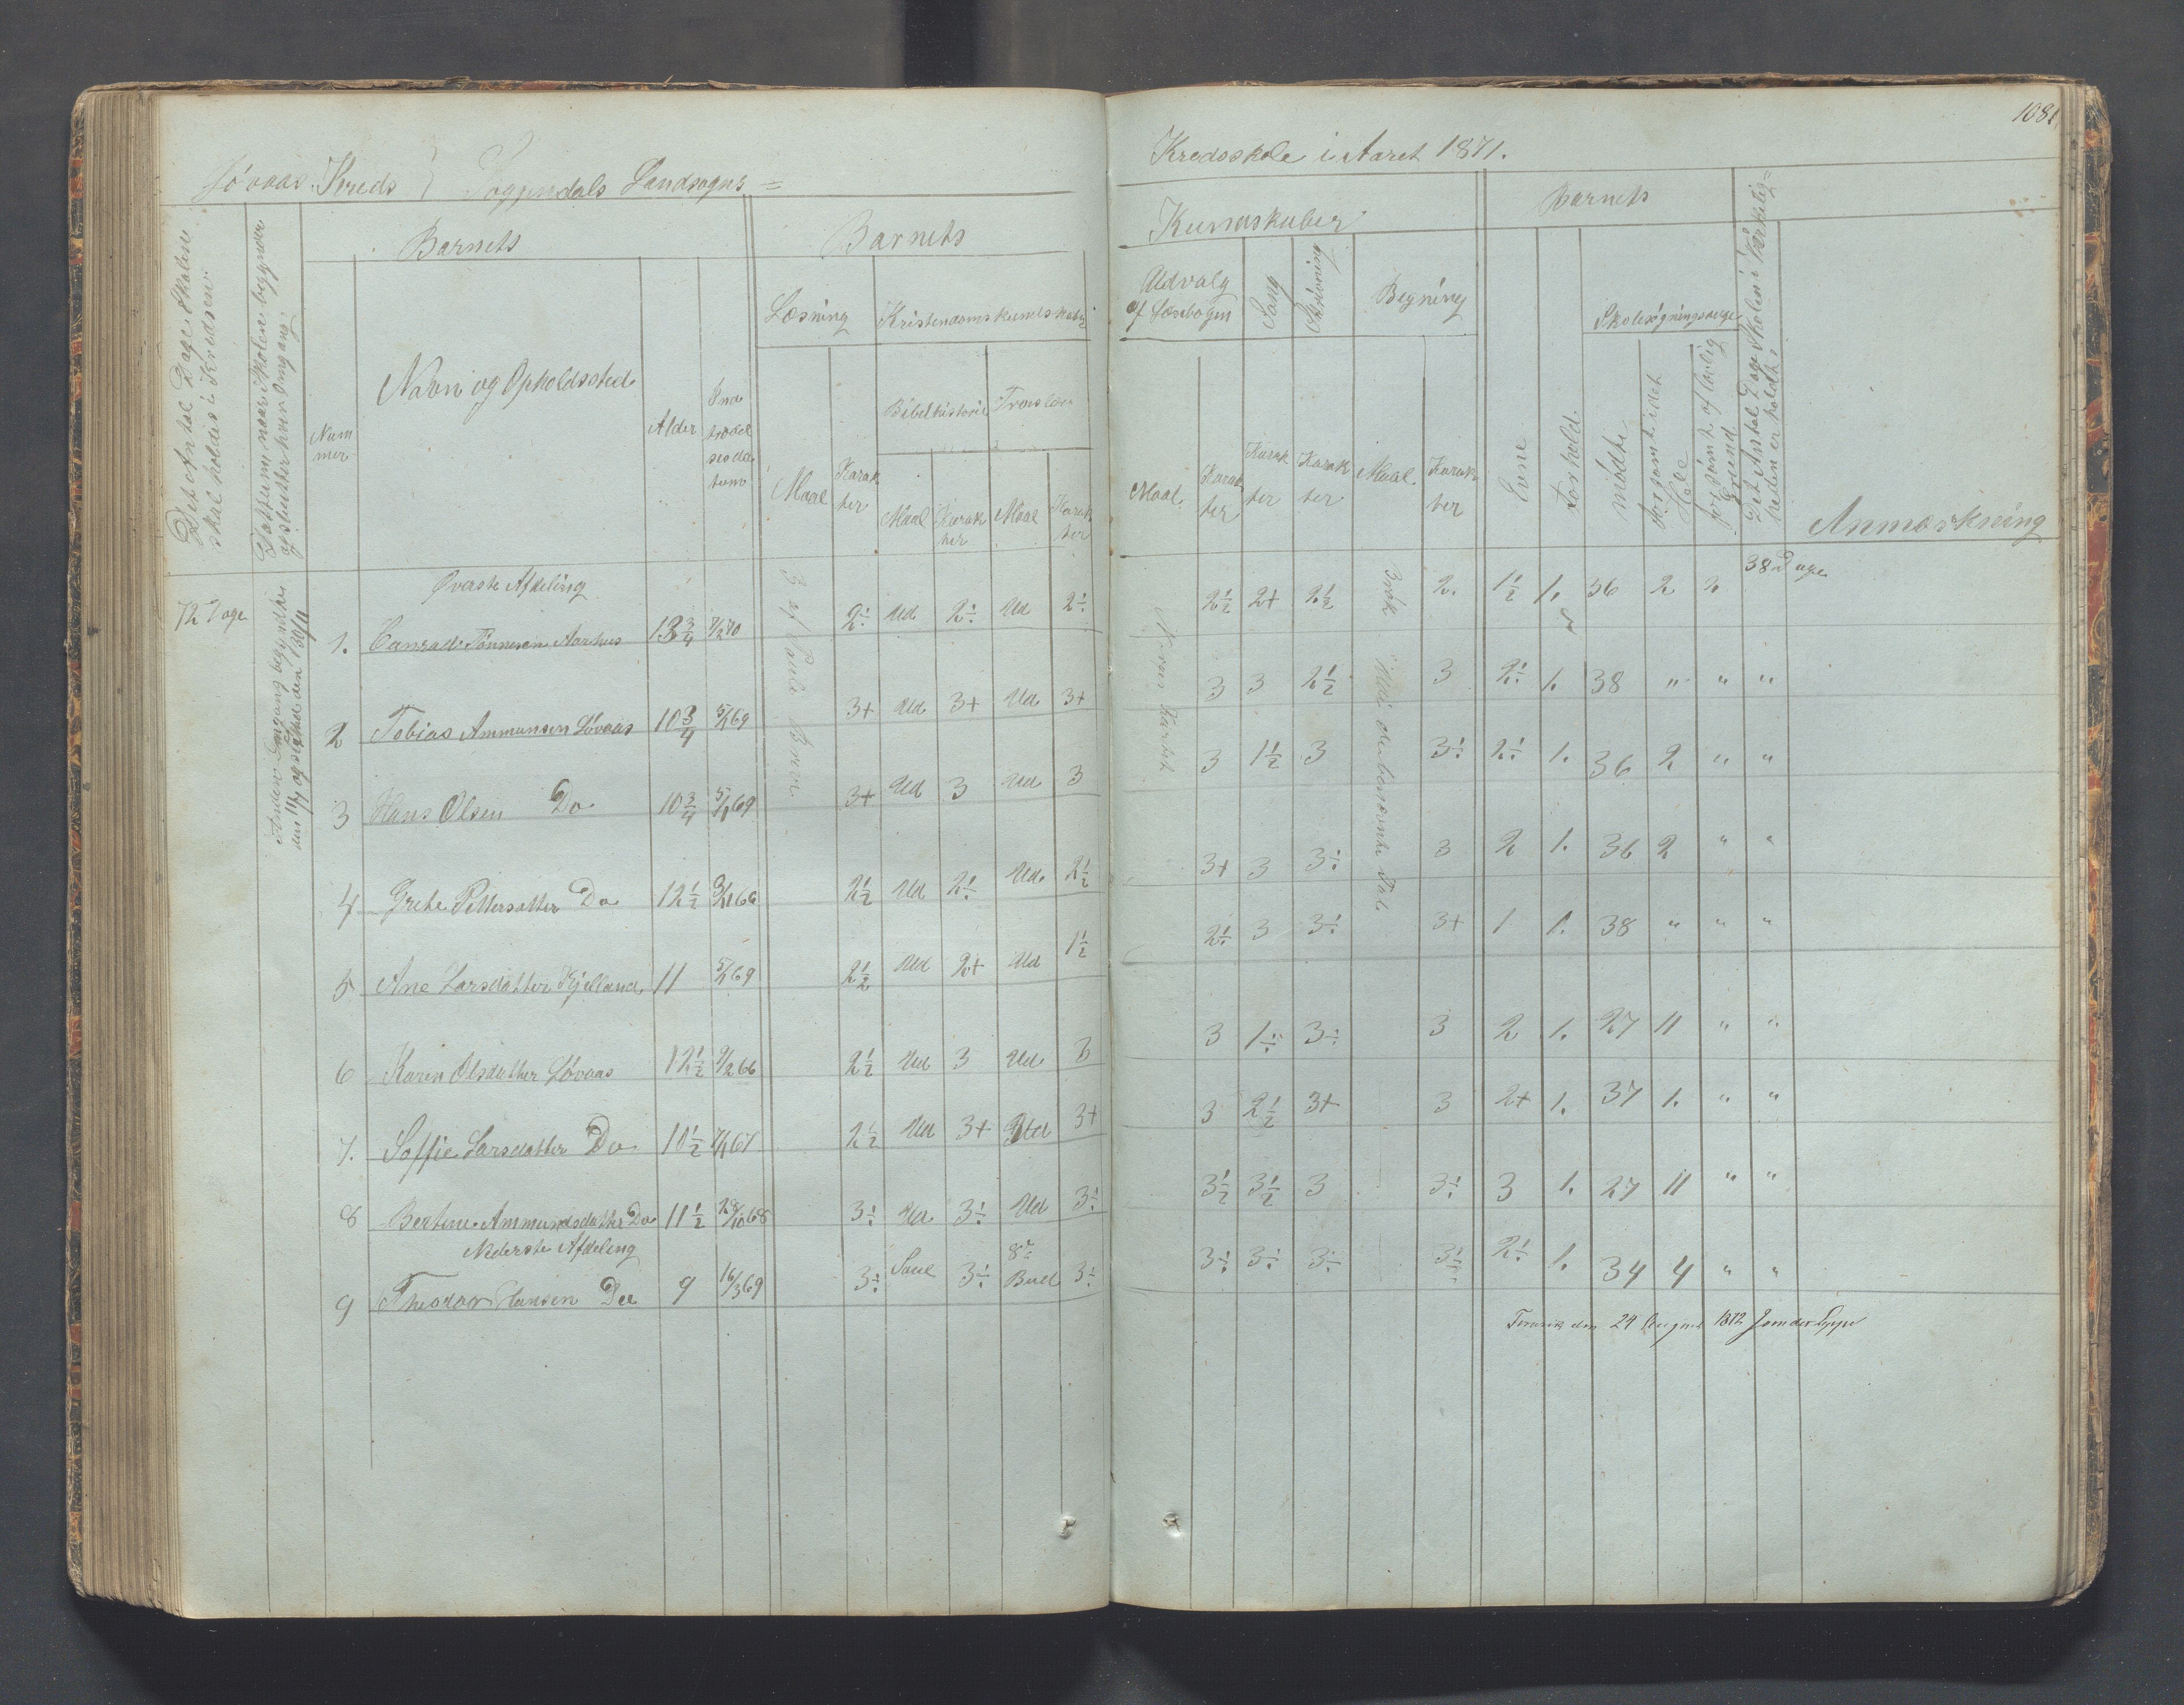 Løvaas Kreds Landsogns
Det Antal Dage Skolen skal holdes i Kredsen
Datum naar Skolen begynder og slutter hver Omgang
Barnets
Barnets
Læsning
Kristendomskundskaber
Nummer
Navn og Opholdssted
Alder
Indtrædelsesdatum
Bibelhistorie
Troeslære
Maal
Karakter
Maal
Karakter
Maal
Karakter
Øverste Afdeling
72 Dage
1. Conrad Tønnesen Aarhus 13 3/4 7/2 70 2÷ Ud 2÷ Ud 2÷
2 Tobias Ammunsen Løvaas 10 3/4 5/1 69 3+ Ud 3+ Ud 3+
3 Hans Olsen Do 10 3/4 5/1 69 3+ Ud 3 Ud 3
4 Grethe Pettersatter Do 12 1/2 3/1 66 2 1/2 Ud 2÷ Ud 2 1/2
5 Ane Larsdatter Kjelland 11 5/1 69 2 1/2 Ud 2+ Ud 1 1/2
6 Karen Olsdatter Løvaas 12 1/2 2/2 66 2 1/2 Ud 3 Ud 3
7. Soffie Larsdatter Do 10 1/2 7/1 67 2 1/2 Ud 3+ Ud 3+
8 Bertine Ammundsdatter Do 11 1/2 28/10 68 3÷ Ud 3÷ Ud 3÷
Nederste Afdeling
9 Theodor Hansen Do 9 16/3 69 3÷ Saul 3÷ 8de Bud 3÷
108
Kredsskole i Aaret 1871.
Kundskaber
Barnets
Udvalg af Læsebogen
Sang
Skrivning
Regning
Skolesøgningsdage
Det Antal Dage Skolen i Virkeligheden er holdt
Maal
Karakter
Karakter
Karakter
Maal
Karakter
Evne
Forhold
mødte
forsømt i det Hele
forsømt af lovlig Grund
Anmærkning
2 1/2 2+ 2 1/2 2. 1 1/2 1. 36 2 2 38 Dage
3 3 2 1/2 3 2÷ 1. 38 " " "
3 1 1/2 3 3÷ 2÷ 1. 36 2 " "
3+ 3 3÷ 3 2 1. 36 2 " "
2÷ 3 3÷ 3+ 1 1. 38 " " "
3 1÷ 3÷ 3 2 1. 27 11 " "
3 2 1/2 3+ 3 2+ 1. 37 1. " "
3 1/2 3 1/2 3 3÷ 3 1. 27 11 " "
3÷ 3÷ 3÷ 3÷ 2÷ 1. 34 4 " "
den 24 August 1872